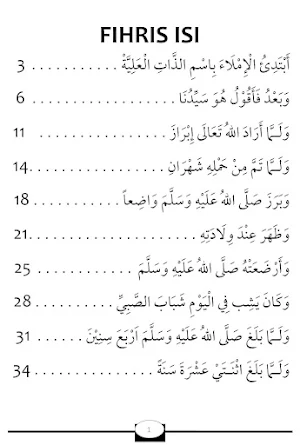 FIHRIS ISI
أَبْتَدِئُ الْإِمْلَاءَ بِاسْمِ الذَّاتِ الْعَلِيَّةْ . . . . . . . . . . . 3
وَبَعْدُ فَأَقُوْلُ هُوَ سَيِّدُنَا . . . . . . . . . . . . . . . 6
وَلَـمَّا أَرَادَ اللهُ تَعَالَى إِبْرَازَ . . . . . . . . . . . . . 11
وَلَـمَّا تَمَّ مِنْ حَمْلِهِ شَهْرَانِ . . . . . . . . . . . . . 14
وَبَرَزَ صَلَّى اللهُ عَلَيْهِ وَسَلَّمَ وَاضِعاً . . . . . . . . . 18
وَظَهَرَ عِنْدَ وِلَادَتِهِ . . . . . . . . . . . . . . . . . . 21
وَأَرْضَعَتْهُ صَلَّى اللهُ عَلَيْهِ وَسَلَّمَ . . . . . . . . . . 25
وَكَانَ يَشِبُ فِي الْيَوْمِ شَبَابَ الصَّبِيِّ . . . . . . . . . 28
وَلَـمَّا بَلَغَ صَلَّى اللهُ عَلَيْهِ وَسَلَّمَ اَرْبَعَ سِنِيْنَ . . . . . 31
وَلَـمَّا بَلَغَ اثْنَتَيْ عَشْرَةَ سَنَةً . . . . . . . . . . . . . 34
1